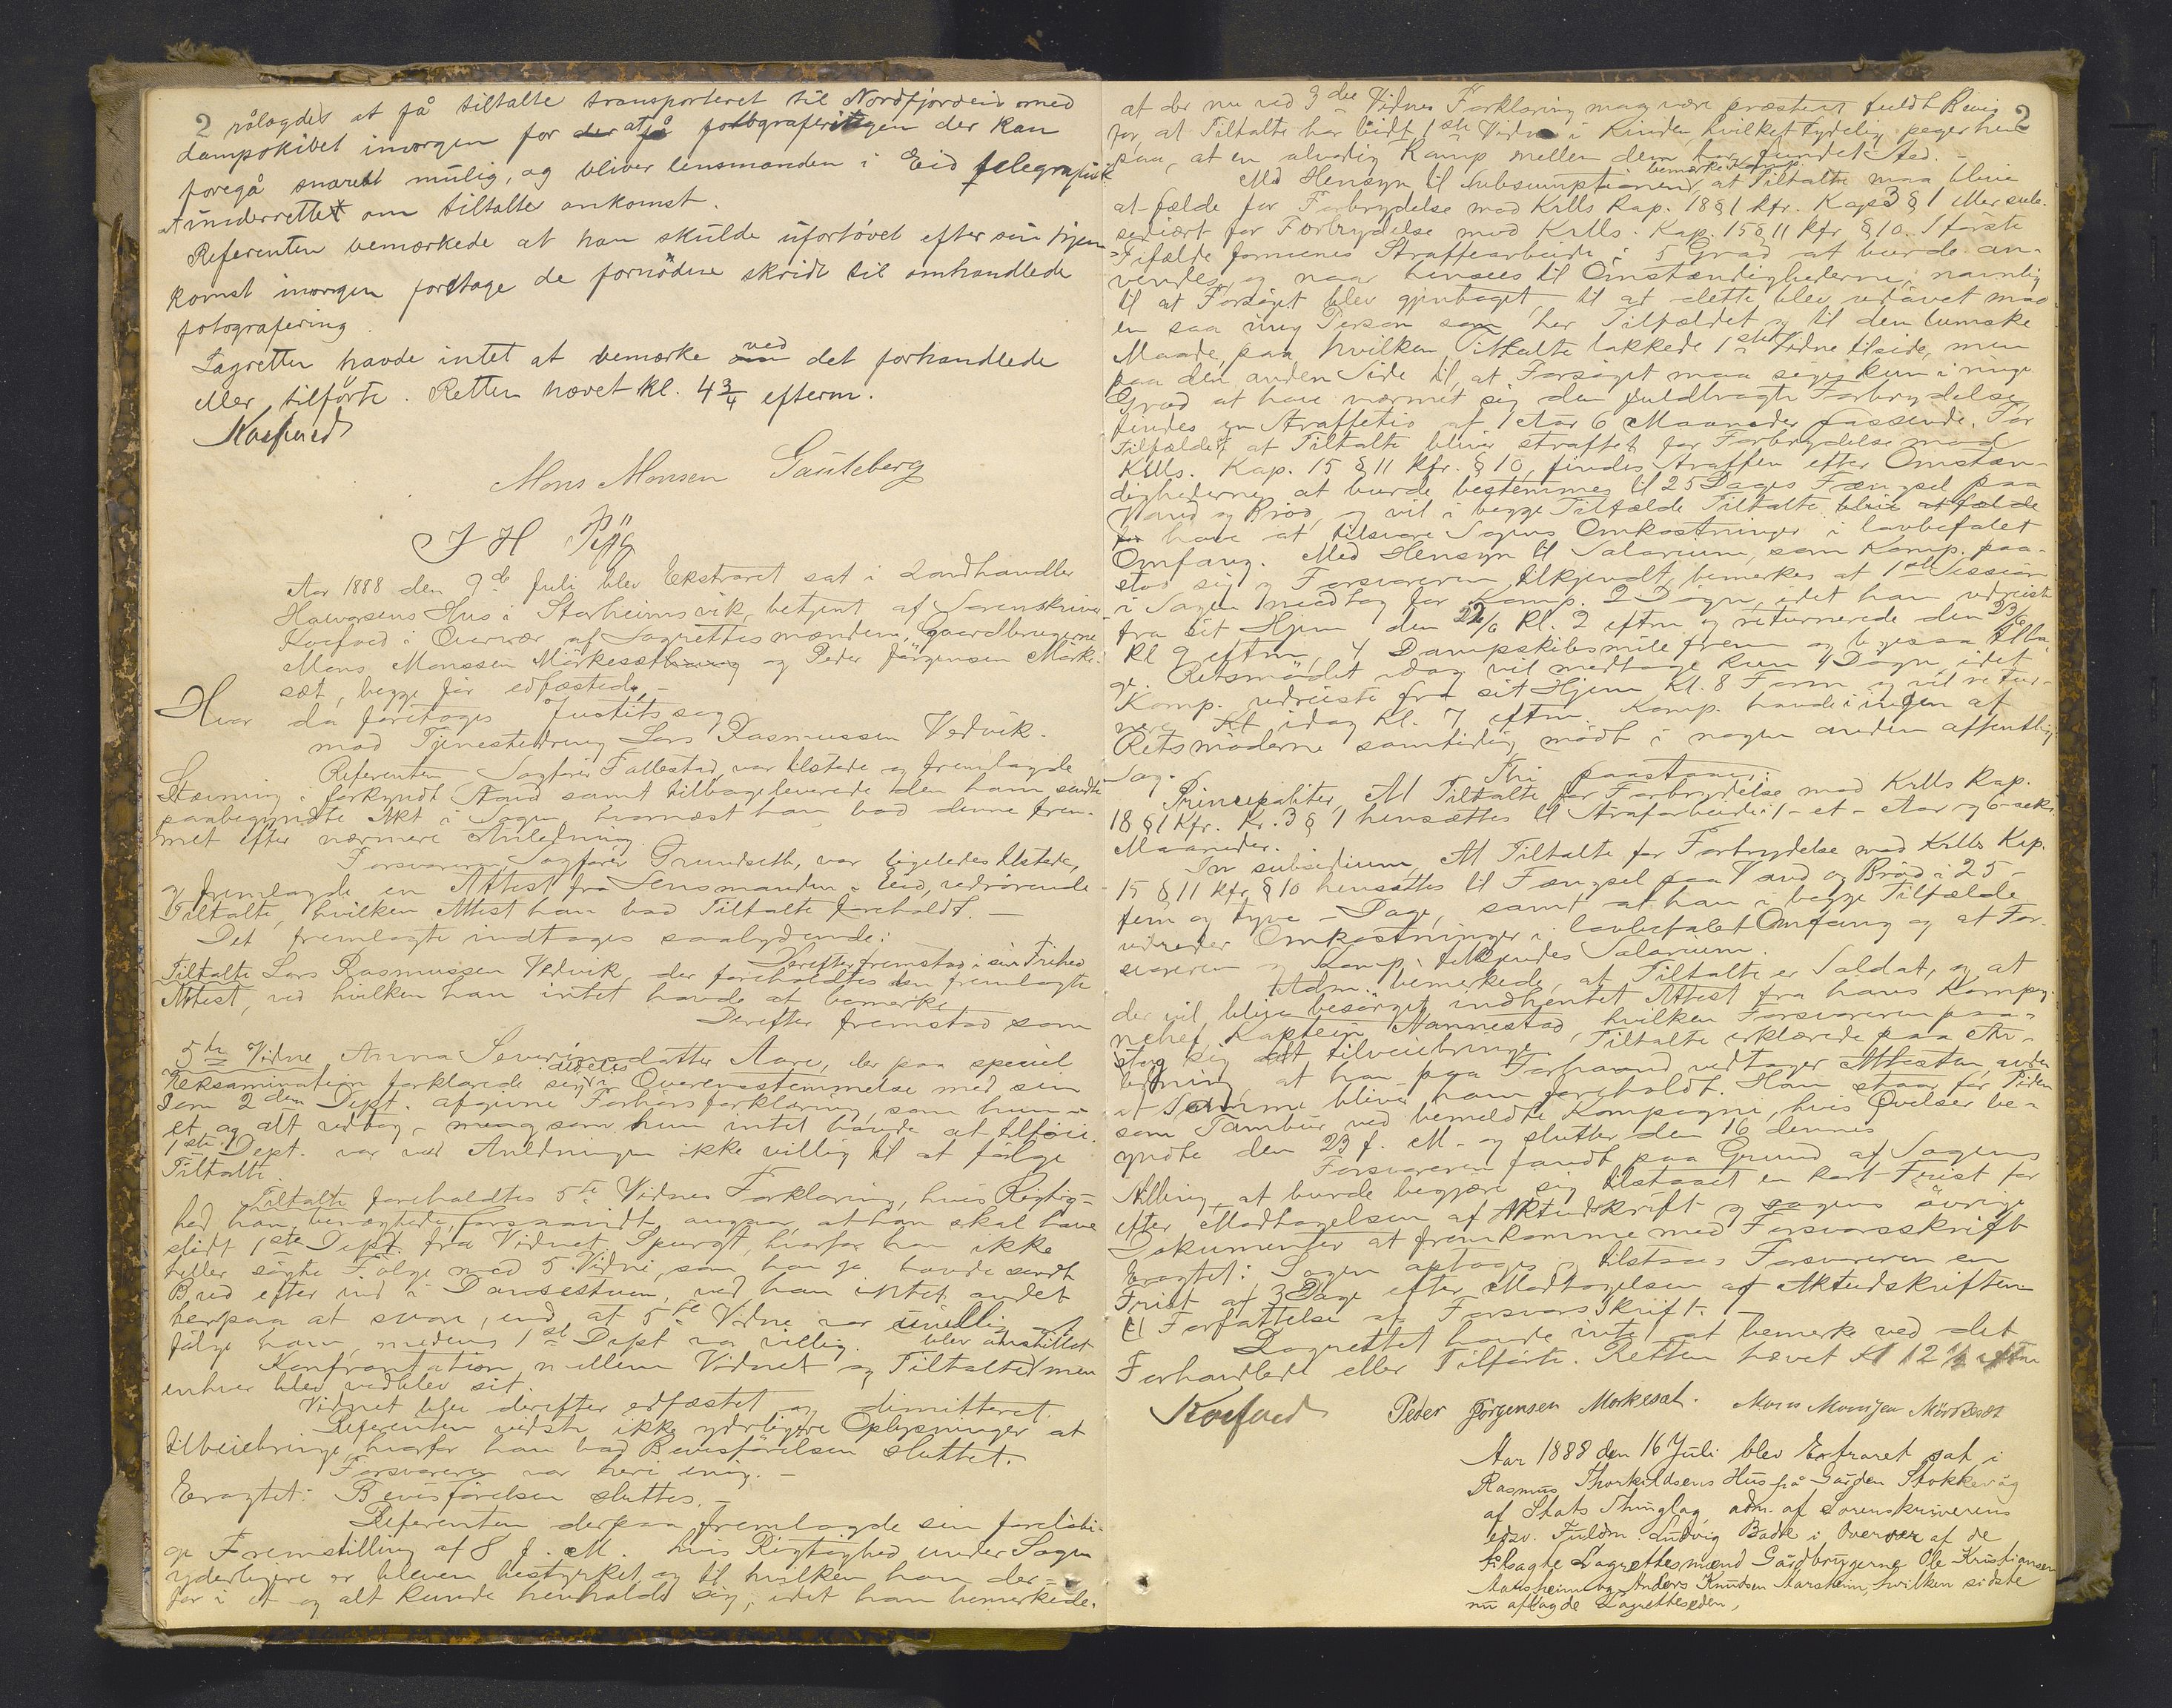 2
pålagdes at få tiltalte transporteret til Nordfjordeid med
dampskibet imorgen for der at få fotograferingen der kan
foregå snarest mulig, og bliver lensmanden i Eid telegrafisk
at underrette om tiltaltes ankomst.
Referenten bemærkede at han skulde ufortøvet efter sin hjem-
komst imorgen foretage de fornødne skridt til omhandlede
fotografering.
Lagretten havde intet at bemærke om ved det forhandlede
eller tilførte. Retten hævet kl. 4 3/4 efterm.
Koefoed
Mons Monsen Gauteberg
J H
Aar 1888 den 9de Juli blev Ekstraret sat i Landhandler
Halvorsens Hus i Starheimsvik, betjent af Sorenskriver
Koefoed i Overvær af Lagrettesmændene, Gaardbrugerne
Mons Monssen Mörkesæt og Peder Jörgensen Mörke-
sæt, begge för edfæstede. –
Hvor da foretoges Justitssag
mod Tjenestedreng Lars Rasmussen Vedvik.
Referenten, Sagförer Fallestad, var tilstede og fremlagde
Stævning i forkyndt Stand samt tilbageleverede den ham sendte
paabegyndte Akt i Sagen, hvornæst han bad denne frem-
met efter nærmere Anledning.
Forsvareren, Sagförer Grundseth, var ligeledes tilstede,
og fremlagde en Attest fra Lensmanden i Eid, vedrörende
Tiltalte, hvilken Attest han bad Tiltalte foreholdt. –
Det fremlagte indtages saalydende:
Derefter fremstod i sin Frihed
Tiltalte Lars Rasmussen Vedvik, der foreholdtes den fremlagte
Attest, ved hvilken han intet havde at bemerke.
Derefter fremstod som
5te Vidne Anna Severinsdatter Aare, der paa speciel
Eksamination forklarede sig aldeles i Overensstemmelse med sin
som 2den Dept. afgivne Forhörsforklaring, som hun i
et og alt vedtog, – og som hun intet havde at tilföie.
1ste Dept. var ved Anledningen ikke villig til at fölge
Tiltalte.
Tiltalte foreholdtes 5te Vidnes Forklaring, hvis Rigtig-
hed han benægtede, forsaavidt angaar, at han skal have
slidt 1ste Dept. fra Vidnet. Spurgt, hvorfor han ikke
heller sögte Fölge med 5. Vidne, som han jo havde sendt
Bud efter ind i Dansestuen, ved han intet andet
herpaa at svare, end at 5te Vidne var uvillig at
fölge ham, medens 1ste Dept. var villig.
Konfrontation mellem Vidnet og Tiltalte blev anstillet men
enhver blev vedblev sit.
Vidnet blev derefter edfæstet og dimitteret.
Referenten vidste ikke yderligere Oplysninger at
tilveiebringe, hvorfor han bad Bevisförelsen sluttet.
Forsvareren var heri enig. –
Eragtet: Bevisförelsen sluttes. –
Referenten derpaa fremlagde sin foreløbi-
ge Fremstilling af 8 d. M. hvis Rigtighed under Sagen
yderligere er bleven bestyrket og til hvilken han der-
for i et og alt kunde henholde sig, idet han bemerkede,
2
at der nu ved 3die Vidnes Forklaring maa være præsteret fuldt Bevis
for, at Tiltalte har bidt 1ste Vidne i Kinden, hvilket tydelig peger hen
paa, at en alvorlig Kamp mellem dem har fundet Sted. –
Med Hensyn til Subsumptionen bemerkede Komp. at Tiltalte maa blive
at fælde for Forbrydelse mod Krlls Kap. 18 § 1 kfr. Kap 3 § 1 eller sub-
sidiært for Forbrydelse mod Krlls. Kap. 15 § 11 kfr. § 10. I förste
Tilfælde formenes Straffearbeide i 5 Grad at burde an-
vendes, og naar hensees til Omstændighederne navnlig
til at Forsöget blev gjentaget, til at dette blev udövet mod
en saa ung Person som her Tilfældet og til den lumske
Maade, paa hvilken Tiltalte lokkede 1ste Vidne tilside, men
paa den anden Side til, at Forsöget maa siges kun i ringe
Grad at have nærmet sig den fuldbragte Forbrydelse,
findes en Straffetid af 1 Aar 6 Maaneder passende. For
Tilfældet at Tiltalte bliver straffet for Forbrydelse mod
Krlls. Kap. 15 § 11 kfr. § 10, findes Straffen efter Omstæn-
dighederne at burde bestemmes til 25 Dages Fængsel paa
Vand og Bröd, og vil i begge Tilfælde Tiltalte blive at fælde
for have at tilsvare Sagens Omkostninger i lovbefalet
Omfang. Med Hensyn til Salarium, som Komp. paa-
stod sig og Forsvareren tilkjendt, bemerkes at 1ste Session
i Sagen medtog for Komp. 2 Dögn, idet han udreiste
fra sit Hjem den 22/6 Kl. 2 eftm og returnerede den 23/6
Kl 9 eftm, 4 Dampskibsmile frem og ligesaa tilba-
ge. Retsmödet idag vil medtage kun 1 Dögn, idet
Komp. udreiste fra sit Hjem Kl. 8 Form og vil retur-
nere Kl idag Kl. 7 eftm. Komp. havde i ingen af
Retsmöderne samtidig mödt i nogen anden offentlig
Sag.
Thi paastaaes:
Principaliter, At Tiltalte for Forbrydelse mod Krlls Kap.
18 § 1 kfr. Kr. 3 § 1 hensættes til Strafarbeide i 1 – et – Aar og 6 – seks
Maaneder.
In subsidium, At Tiltalte for Forbrydelse mod Krlls Kap.
15 § 11 kfr. § 10 hensættes til Fængsel paa Vand og Bröd i 25 –
fem og tyve – Dage, samt at han i begge Tilfælde
udreder Omkostninger i lovbefalet Omfang og at For-
svareren og Komp. tilkjendes Salarium.
Adm. bemerkede, at Tiltalte er Soldat, og at
der vil blive besörget indhentet Attest fra hans Kompag-
nichef, Kaptein Nannestad, hvilken Forsvareren paa-
tog sig at tilveiebringe. Tiltalte erklærede paa An-
ledning, at han paa Forhaand vedtager Attesten, uden
at Samme bliver ham foreholdt. Han staar for Tiden
som Tambur ved bemeldte Kompagni, hvis Övelser be-
gyndte den 23 f. M. og slutter den 16 dennes
Forsvareren fandt paa Grund af Sagens
Stilling, at burde begjære sig tilstaaet en kort Frist for
efter Modtagelsen af Aktudskrift og sagens övrige
Dokumenter at fremkomme med Forsvarsskrift
Eragtet: Sagen optages og tilstaaes Forsvareren en
Frist af 3 Dage efter Modtagelsen af Aktudskriften
til Forfattelse af Forsvarsskrift. –
Lagrettet havde intet at bemerke ved det
Forhandlede eller Tilförte. Retten hævet Kl 12 1/2 eftm
Koefoed Peder Jörgensen Morkesæt. Mons Monsen Mörkesæt
Aar 1888 den 16 Juli blev Extraret sat i
Rasmus Thorkildsens Hus på Gården Stokkevåg
af Stats Thinglag, adm. af Sorenskriverens
edsv. Fuldm. Ludvig Badte i Overvær af de
tilsagte Lagrettesmænd Gårdbrugerne Ole Kristiansen
Aarsheim og Anders Knudsen Aarsheim, hvilken sidste
nu aflagde Lagretteseden,